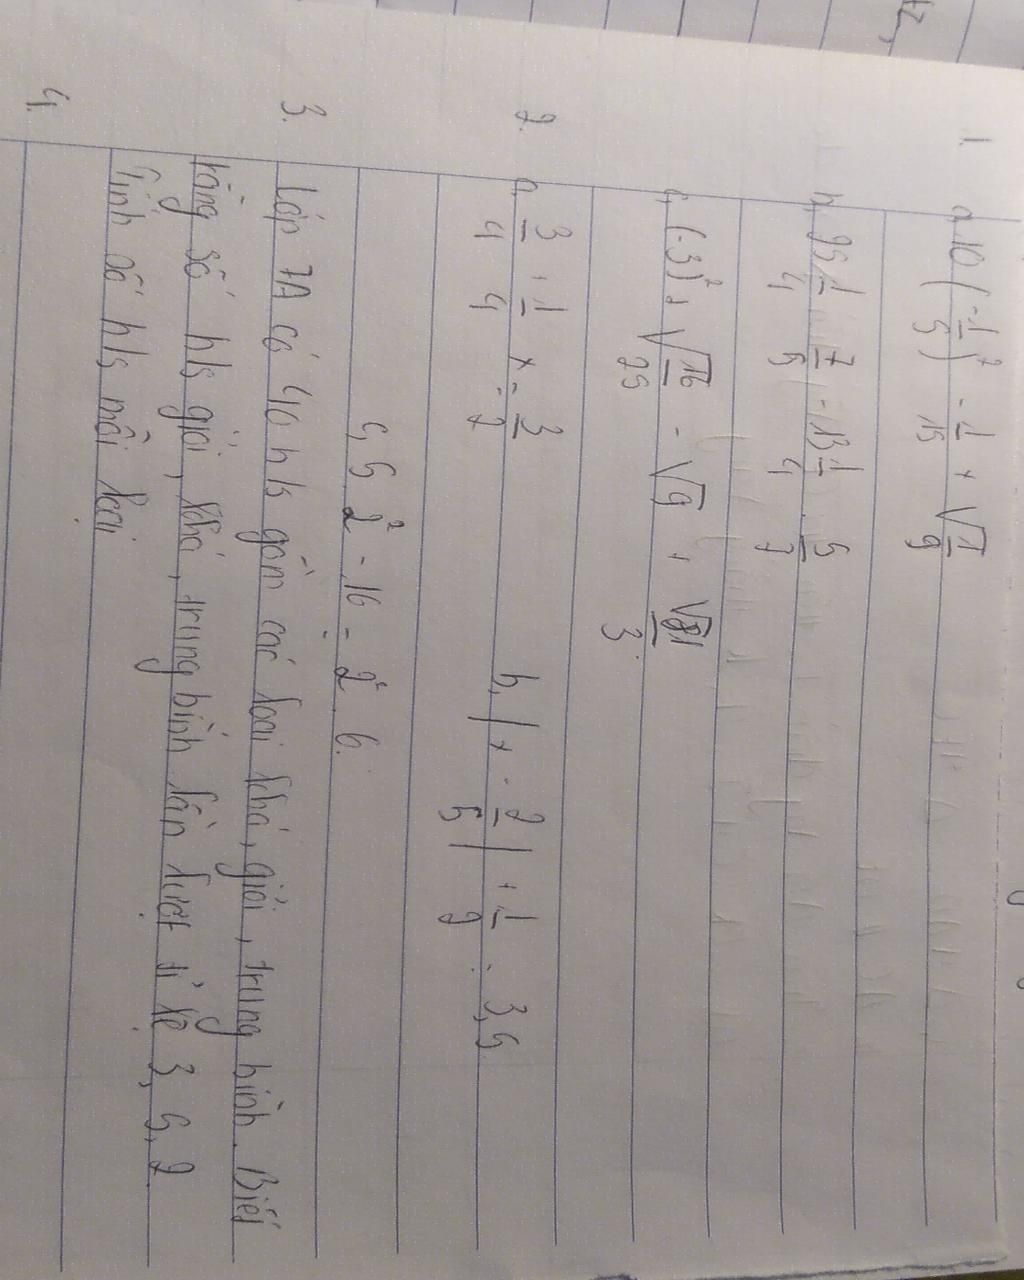 1. a, 10 (-1/5)² - 1/15 + √1/9
b, 25 1/4 . 7/5 - 13 1/4 . 5/7
c, (-3)² + √16/25 - √9 + √81/3
2. a, 3/4 + 1/4 x = 3/2 b, |x - 2/5| + 1/2 = 3,5
c, 5 2ˣ - 16 = 2² . 6
3. Lớp 7A có 40 h/s gồm các loại khá, giỏi, trung bình. Biết
rằng số h/s giỏi, khá, trung bình lần lượt tỉ lệ 3, 5, 2
Tính số h/s mỗi loại
4.